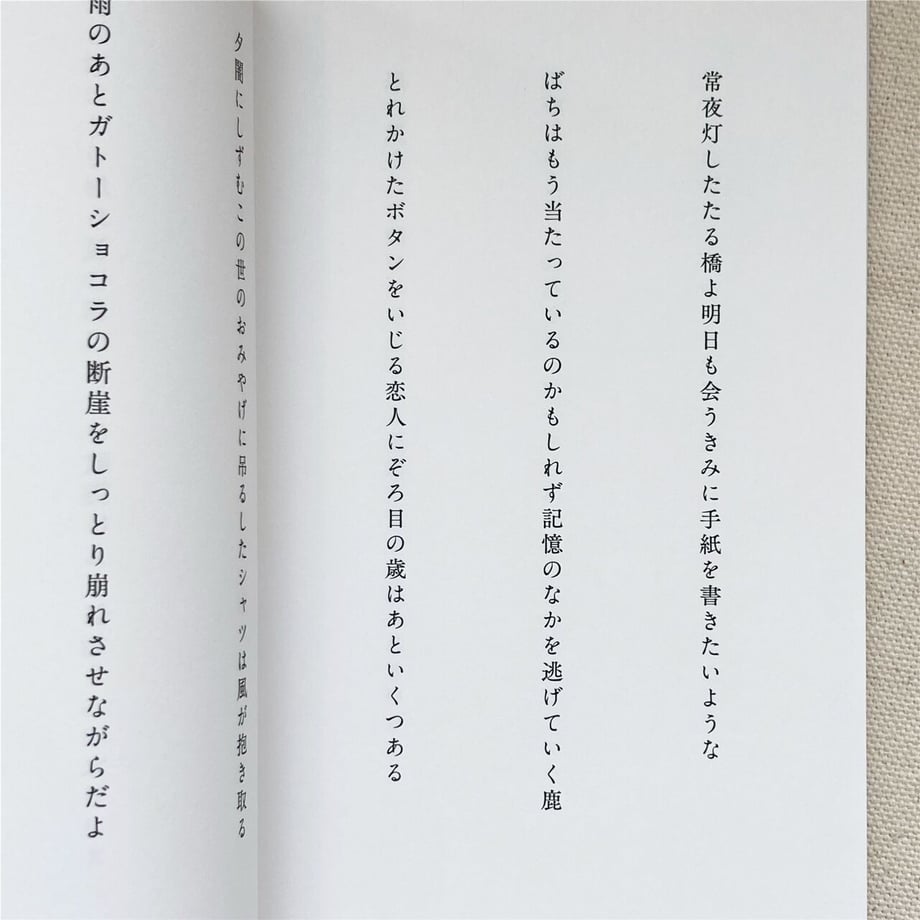 常夜灯したたる橋よ明日も会うきみに手紙を書きたいような
ばちはもう当たっているのかもしれず記憶のなかを逃げていく鹿
とれかけたボタンをいじる恋人にぞろ目の歳はあといくつある
夕闇にしずむこの世のおみやげに吊るしたシャツは風が抱き取る
雨のあとガトーショコラの断崖をしっとり崩れさせながらだよ